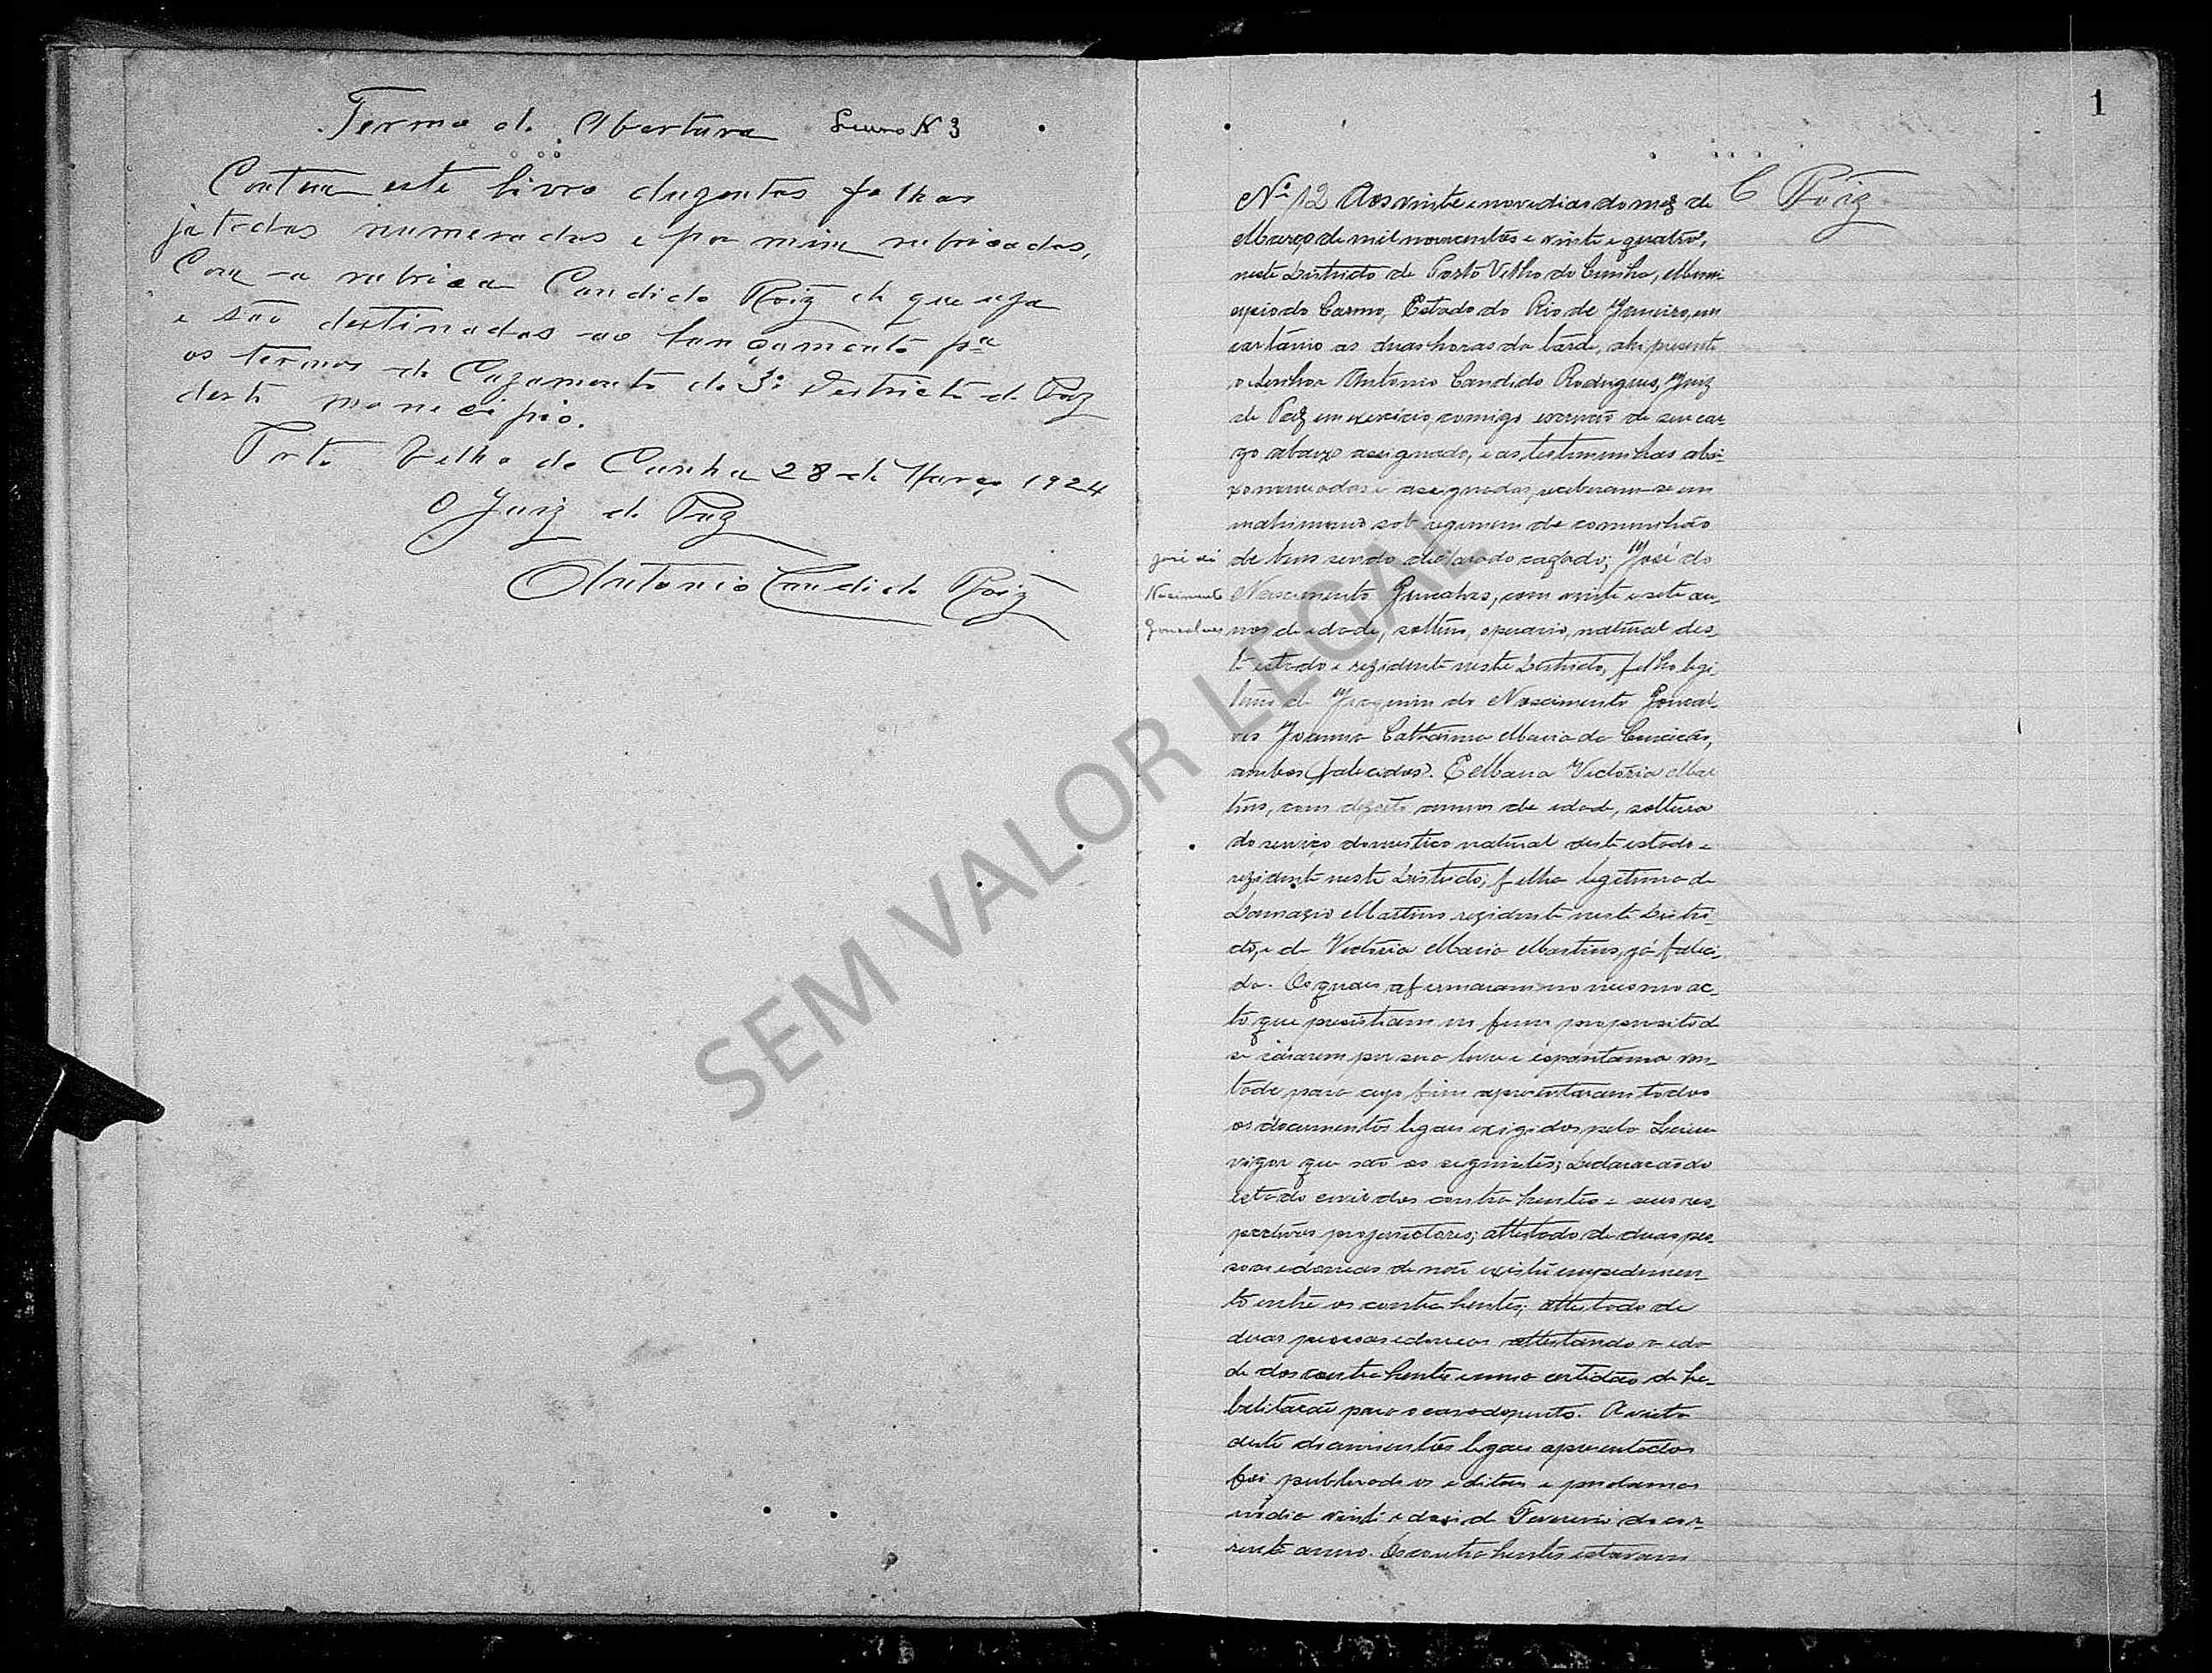 Termo de Abertura Livro N 3
Contem este livro duzentas folhas
já todas numeradas e por mim rubricadas,
Com a rubrica Candido Roiz de que uza
e são destinadas ao lançamento pra
os termos de Cazamento do 3º Destricto de Paz
deste municipio.
Porto Velho do Cunha 28 de Março 1924
O Juiz de Paz
Antonio Candido Roiz
1
C Roiz
Nº 12 Aos vinte e nove dias do mez de
Março de mil novecentos e vinte e quatro,
neste Districto de Porto Velho do Cunha, Muni-
cipio do Carmo, Estado do Rio de Janeiro, em
cartorio as duas horas da tarde, ahi presente
o Senhor Antonio Candido Rodrigues, Juiz
de Paz em exercicio, comigo escrivão de seu car-
go abaixo assignado, e as testimunhas abai-
xo nomeadas e assignadas, receberam-se em
matrimonio sob regimem de comunhão
de bens sendo declarado cazado; José do
Nascimento Gonçalves, com vinte e sete an-
nos de idade, solteiro, operario, natural des-
te estado e rezidente neste Districto, filho legi-
timo de Joaquim do Nascimento Gonçal-
ves Joanna Catharina Maria da Conceicão,
ambos (falecidos). E Maria Victoria Mar
tins, com dezoito annos de idade, solteira
do serviço domestico natural deste estado e
rezidente neste Districto; filha legitima de
Damazio Martins rezidente neste Distri-
cto, e de Victoria Maria Martins, já faleci-
da. Os quaes afirmaram no mesmo ac-
to que persistiam no firme proposito de
se cazarem por sua livre e espontanea von-
tade para cujo fim aprezentaram todos
os documentos legaes exigidos pela Lei em
vigor que são os seguintes; Declaracão do
estado civil dos contrahentes e seus res-
pectivos progenitores; attestado de duas pes-
soas idoneas de não existir impedimen-
to entre os contrahentes; attestado de
duas pessoas idoneas attestando a ida
de dos contrahentes e uma certidão de ha-
bilitacão para o casamento. A vista
deste documentos legaes aprezentados
foi publicado os editaes e proclamas
no dia vinte e dois de Fevereiro do cor-
rente anno. Os contrahentes estavam
José do
Nascimento
Goncalves
SEM VALOR LEGAL